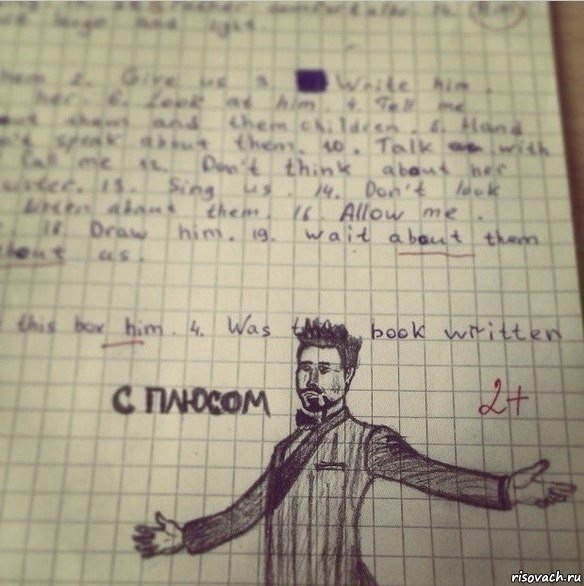 huge and
2. Give us 3. Write him.
her. 6. Look at him. 7. Tell me
them and them children. 8. Hand
speak about them. 10. Talk with
Call me 12. Don't think about her
sister. 13. Sing us. 14. Don't look
about them. 16. Allow me.
18. Draw him. 19. wait about them
about us.
this box him. 4. Was book written
С ПЛЮСОМ
2+
risovach.ru